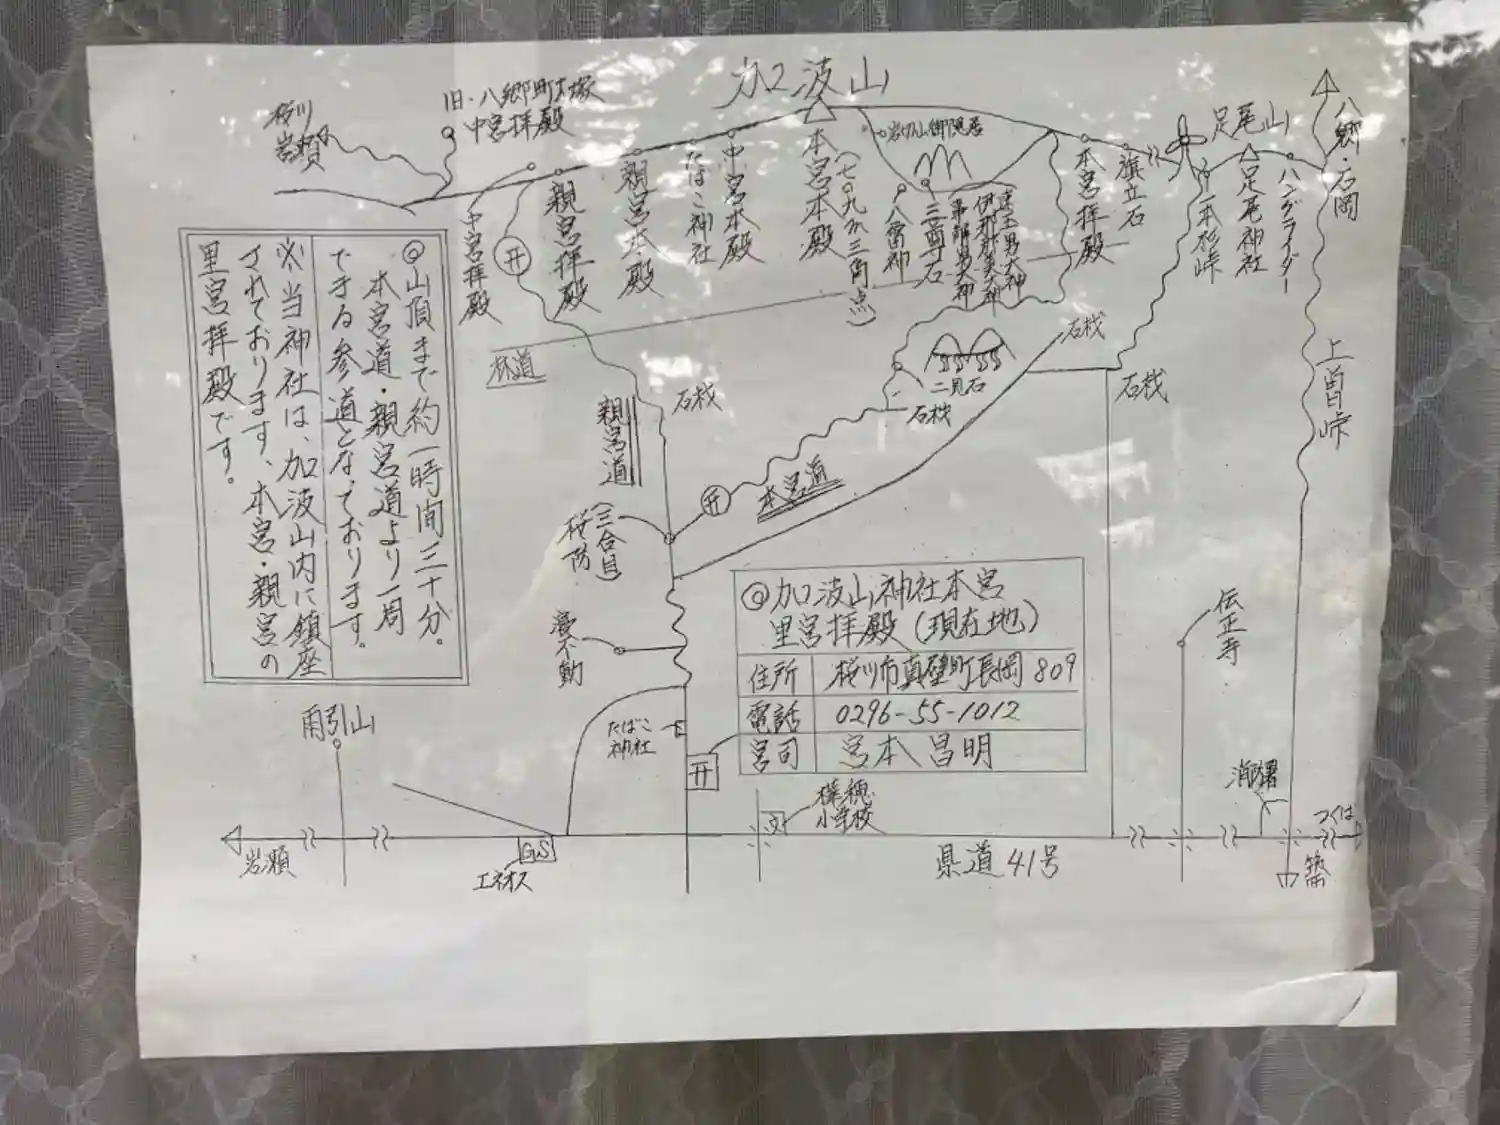 加波山
旧・八郷町大塚
中宮拝殿
桜川
岩瀬
中宮拝殿
親宮拝殿
親宮本殿
たばこ神社
中宮本殿
本宮本殿
(七〇九m三角点)
八雷神
三尊石
本宮拝殿
旗立石
足尾山
一本杉峠
足尾神社
ハングライダー
八郷・石岡
上曽峠
◎山頂まで約一時間三十分。
本宮道・親宮道より一周
できる参道となっております。
※当神社は、加波山内に鎮座
されております、本宮・親宮の
里宮拝殿です。
林道
親宮道
石栈
二見石
石栈
石栈
石栈
本宮道
(三合目)
桜防
不動
たばこ
神社
◎加波山神社本宮
里宮拝殿(現在地)
住所 桜川市真壁町長岡809
電話 0296-55-1012
宮司 宮本昌明
伝正寺
雨引山
樺穂
小学校
文
消防署
岩瀬
GS
エネオス
県道41号
つくば